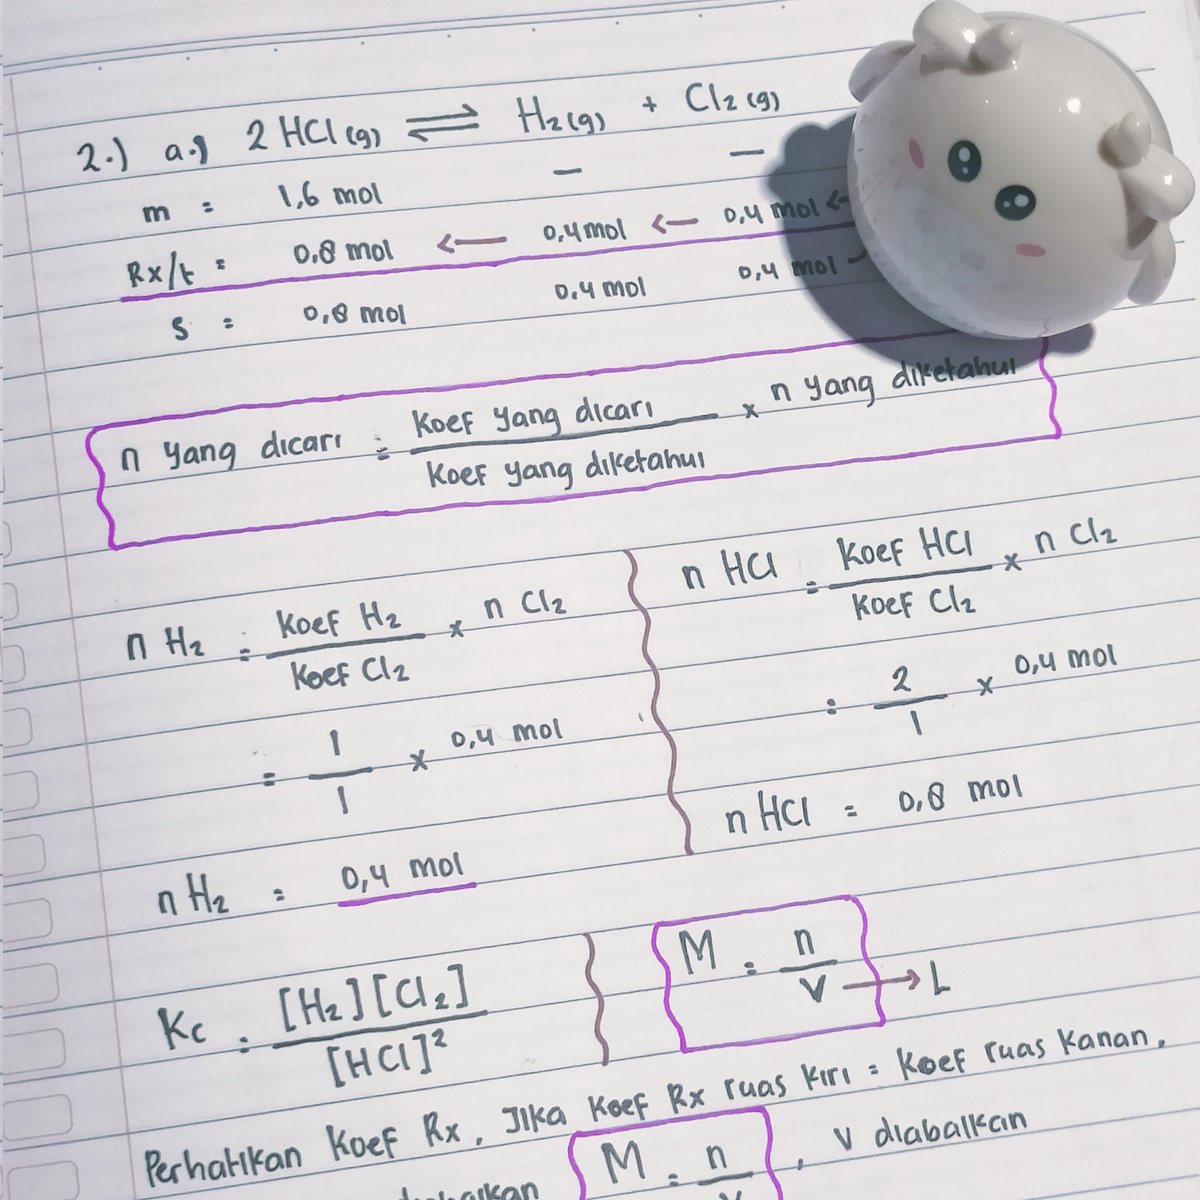 2.) a.) 2 HCl (g) ⇌ H₂(g) + Cl₂ (g)
m : 1,6 mol — —
Rx/t : 0.8 mol ← 0,4 mol ← 0,4 mol ←
s : 0,8 mol 0.4 mol 0,4 mol
n yang dicari = koef yang dicari / koef yang diketahui × n yang diketahui
n H₂ = koef H₂ / koef Cl₂ × n Cl₂
= 1 / 1 × 0,4 mol
n H₂ = 0,4 mol
n HCl = koef HCl / koef Cl₂ × n Cl₂
= 2 / 1 × 0,4 mol
n HCl = 0,8 mol
Kc = [H₂][Cl₂] / [HCl]²
M = n / V → L
Perhatikan koef Rx, Jika koef Rx ruas kiri = koef ruas kanan,
M = n / V , V diabaikan